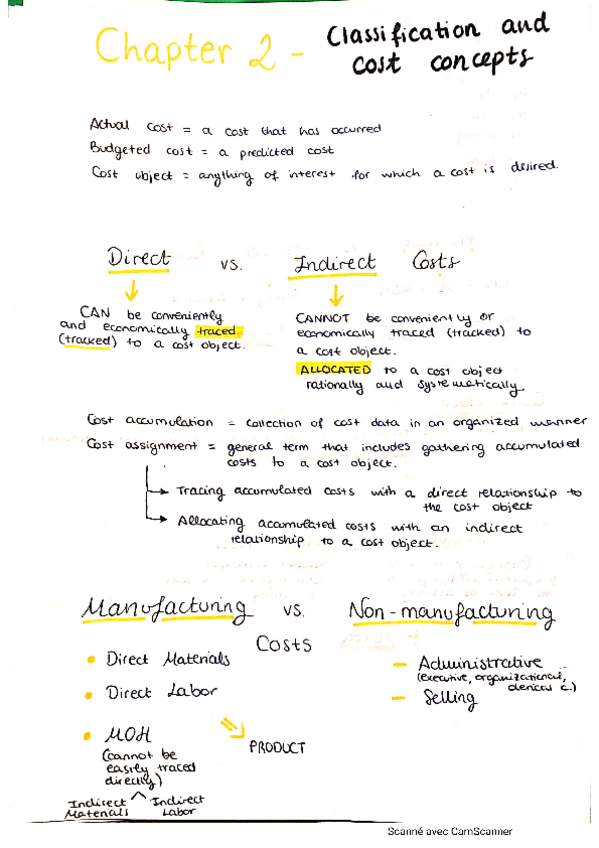 Chapter 2 - Classification and
cost concepts
Actual cost = a cost that has occurred
Budgeted cost = a predicted cost
Cost object = anything of interest for which a cost is desired.
Direct vs. Indirect Costs
CAN be conveniently
and economically traced
(tracked) to a cost object.
CANNOT be conveniently or
economically traced (tracked) to
a cost object.
ALLOCATED to a cost object
rationally and systematically.
Cost accumulation = collection of cost data in an organized manner
Cost assignment = general term that includes gathering accumulated
costs to a cost object.
Tracing accumulated costs with a direct relationship to
the cost object
Allocating accumulated costs with an indirect
relationship to a cost object.
Manufacturing vs. Non-manufacturing
Costs
• Direct Materials
• Direct Labor
• MOH
(cannot be
easily traced
directly)
Indirect Materials
Indirect Labor
PRODUCT
– Administrative
(executive, organizational,
clerical c.)
– Selling
Scanné avec CamScanner